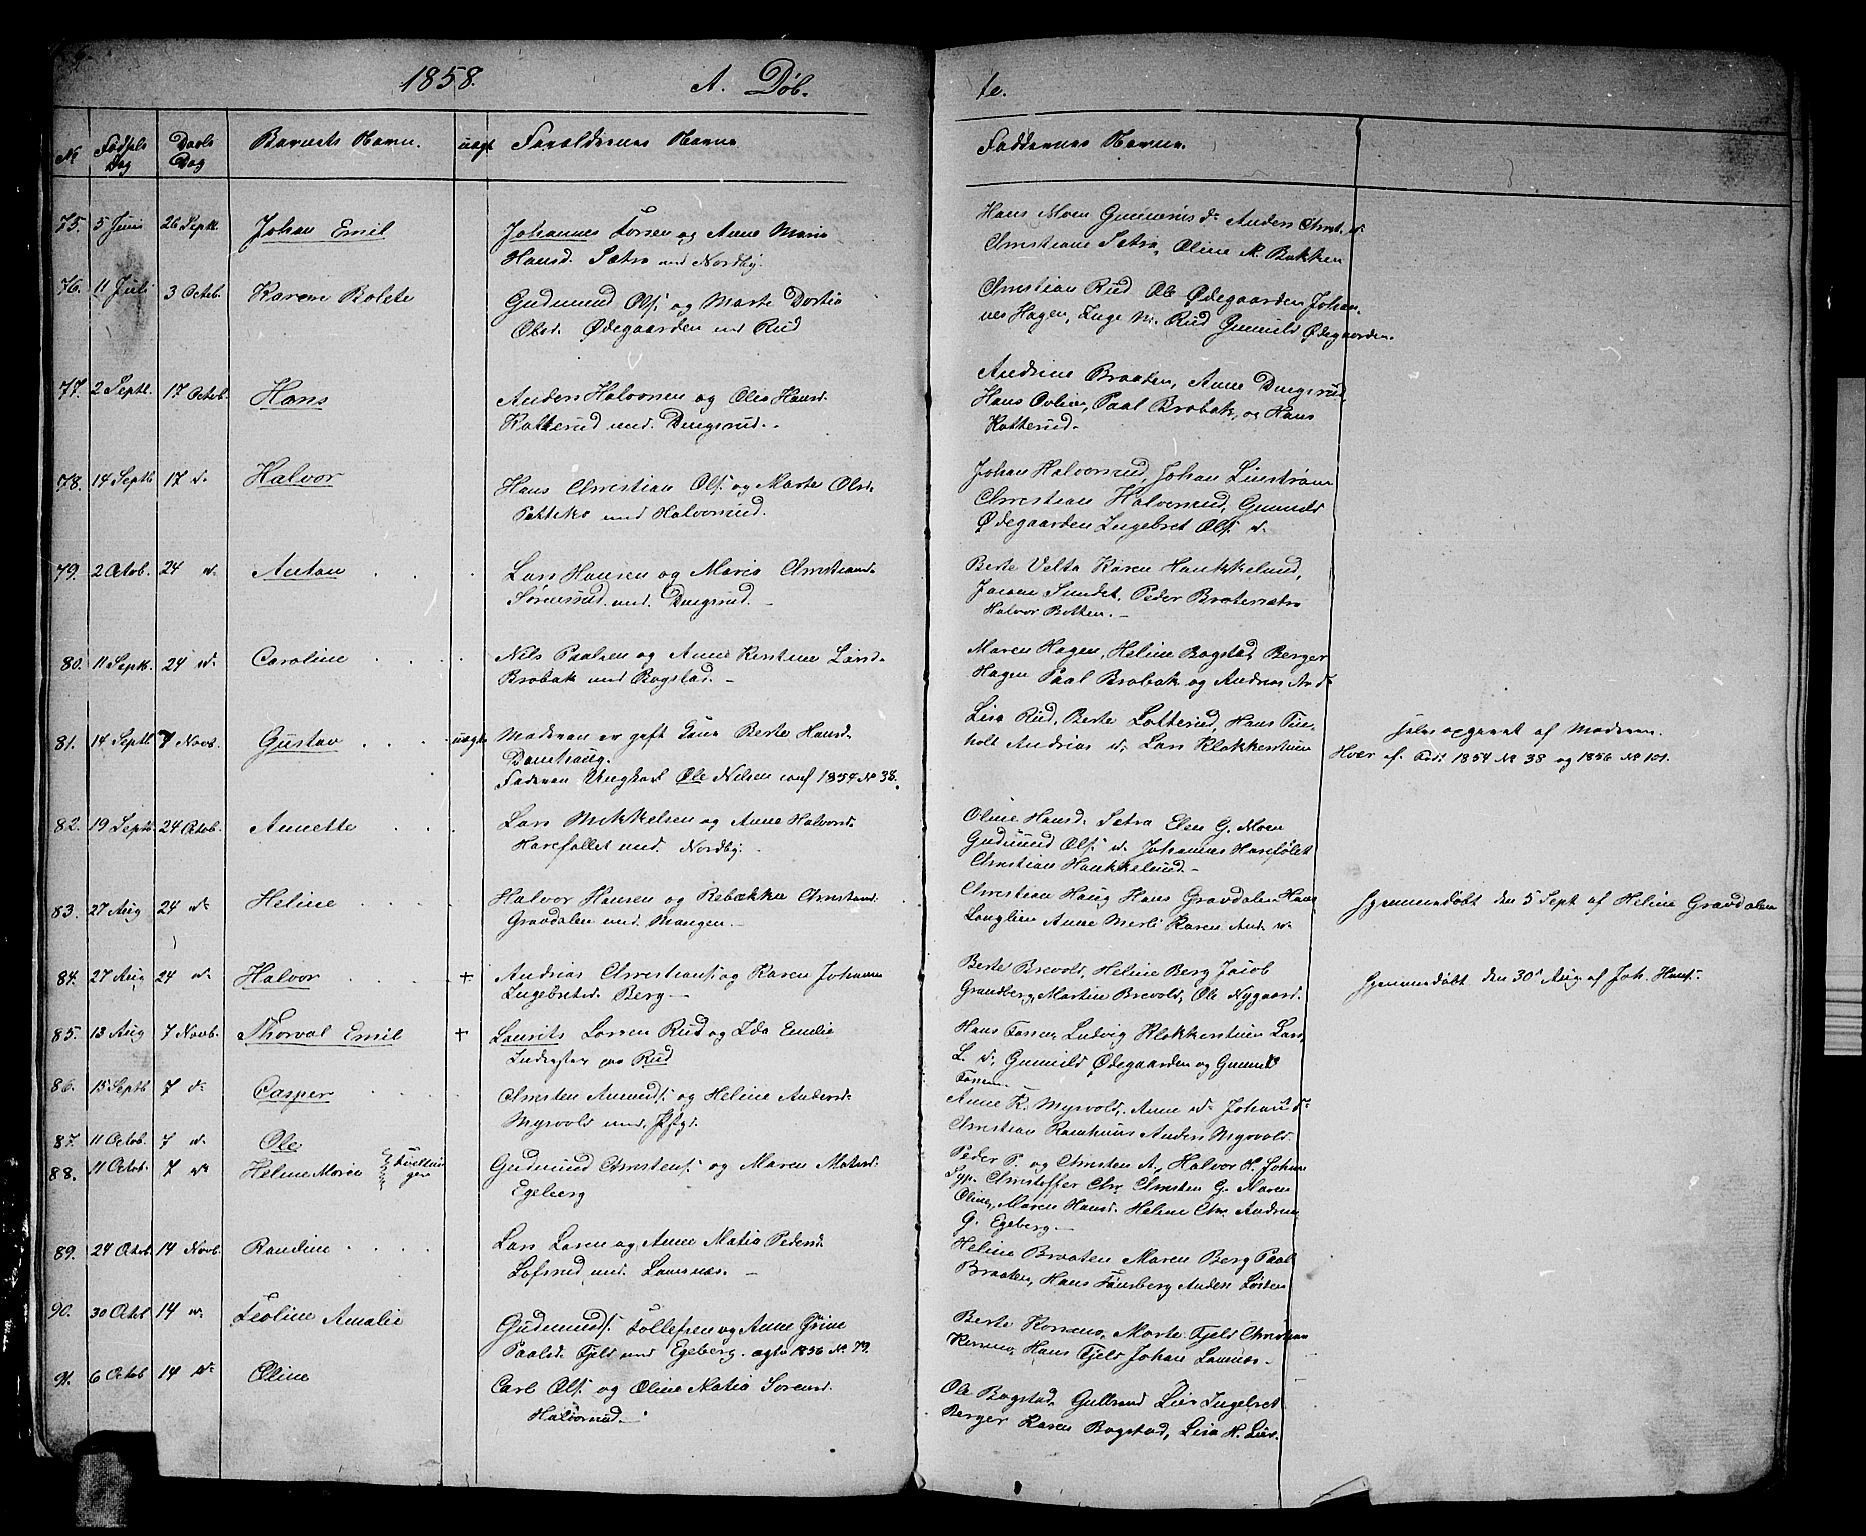 1858. A. Døb- te.
No Fødsels Dag Daabs Dag Barnets Navn. uægt Forældrenes Navne Faddernes Navne.
75. 5 Juni 26 Septb. Johan Emil
Johannes Torsen og Anne Maria
Hansd. Sætra med Nordby.
Hans Moen Anders Christ. d.
Christiane Sætra, Oline M. Bakken
76. 11 Juli 3 Octob. Karen Bolete
Gudmund Ols. og Marte Dortia
Olsd. Ødegaarden Rud
Christian Rud Ole Ødegaarden Johan-
nes Hagen, Inge M. Rud Gunnild Ødegaarden.
77. 2 Septb. 17 Octob. Hans
Anders Halvorsen og Olia Hansd.
Kotterud med. Dingsrud.-
Andrine Braaten, Anne Dingsrud
Hans Paal Brobak, og Hans
Kotterud-
78. 14 Septb 17 d. Halvor
Hans Christian Ols. og Marte Olsd.
med Halvorsrud.
Johan Halvorsrud, Johan Linstrøm
Christian Halvorsrud, Gunnild
Ødegaarden Ingebret Ols. d.
79. 2 Octob. 24 d. Anton
Lars Hansen og Maria Christiansd.
Sørensrud. med. Dingsrud.-
Berte Velta Karen Haukkelund,
Sundet, Peder Bratersætra
Halvor Botten.-
80. 11 Septb. 24 d. Caroline
Nils Paalsen og Anne Kirstine Larsd.
Brobak med Bogstad.-
Maren Hagen, Heline Bogstad, Berger
Hagen Paal Brobak og Andreas And
81. 14 Septb 7 Novb. Gustav uægte
Moderen er gift Berte Hansd.
Faderen Ungkarl Ole Nilsen conf 1854 No 38.
Lisa Rud, Berte Hans
holt Andrias d. Lars Klokkerstuen
opgivet af Moderen.
Hver af 1854 No 38 og 1856 No 101.
82. 19 Septb. 24 Octob. Annette
Lars Mikkelsen og Anne Halvorsd.
Harefallet med. Nordby.-
Oline Hansd. Sætra Elen G. Moen
Gudmund Ols. d. Johannes Harefallet
Christian Haukkelund.-
83. 27 Aug 24 d. Heline
Halvor Hansen og Rebækka Christiansd.
Gravdalen med. Mangen.-
Christian Haug Hans Gravdalen Hans
Langlien Anne Merli Karen And. d.
Hjemmedøbt den 5 Sept af Heline Gravdalen
84. 27 Aug 24 d. Halvor +
Andrias Christians. og Karen Johanne
Ingebretsd. Berg.-
Berte Brevold, Heline Berg Jacob
Grandberg, Martin Brevold, Ole Nygaard.
Hjemmedøbt den 30 Aug af Joh. Hans.
85. 13 Aug 7 Novb. Thorval Emil +
Laurits Larsen Rud og Ida Emilie
Indregter paa Rud
Hans Tossen, Ludvig Klokkerstuen Lars
L. d. Gunnild Ødegaarden og Gunnild
Tossen.
86. 15 Septb 7 d. Casper
Christen Amunds. og Heline Andersd.
Myrvold med
Anne K. Myrvold, Anne d. Johan d.
Christian Anders Myrvold.
87. 11 Octob. 7 d. Ole
88. 11 Octob. 7 d. Heline Maria Tvillin-
ger
Gudmund Christens. og Maren Matisd.
Egeberg
Peder P. og Christen A., Halvor H. Johan
Christoffer Chr. Christen G. Maren
Oline, Maren Hansd. Helene Chr. Andrine
G. Egeberg.-
89. 24 Octob 14 Novb. Randine
Lars Larsen og Anne Matia Pedersd.
Lofsrud med.
Heline Braaten Maren Berg Paal
Braaten, Hans Tønsberg Anders
90. 30 Octob 14 d. Teoline Amalie
Gudmund Tollefsen og Anne Grine
Paalsd. Fjeld med Egeberg. 1856 No 79.
Berte Marte Fjeld Christian
Hans Fjeld Johan
91. 6 Octob 14 d. Oline
Carl Ols. og Oline Matia Sørensd.
Halvorsrud.-
Ole Bogstad, Gulbrand Lier Ingebret
Berger Karen Bogstad, Lisa H. Lier.